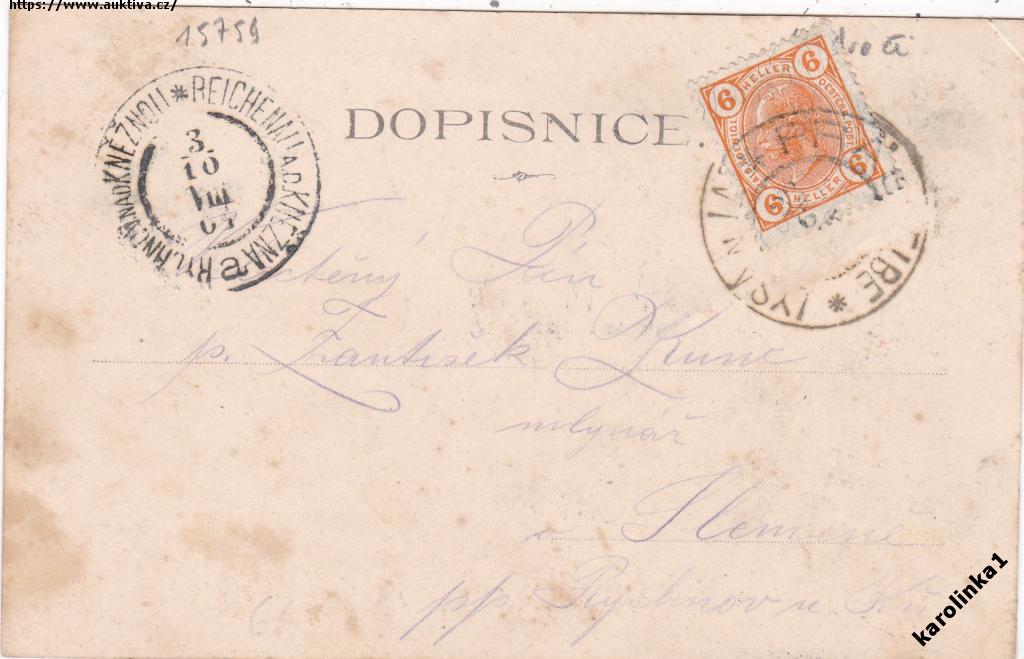 https://www.auktiva.cz/
15759
DOPISNICE.
REICHENAU A.D. KNĚŽNA
RYCHNOV NAD KNĚŽNOU
3.
10
VIII
04
6 HELLER 6
6 HELLER 6
LYSÁ N. LAB.
ELBE
Ctěný Pán
p. František Kunc
mlynář
v Slemeně
pp Rychnov n. Kň
karolinka1